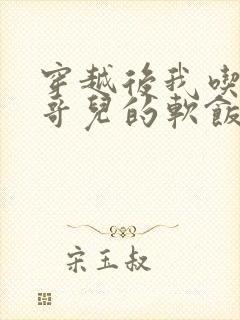 穿越後我喫
哥兒的軟飯
宋玉叔